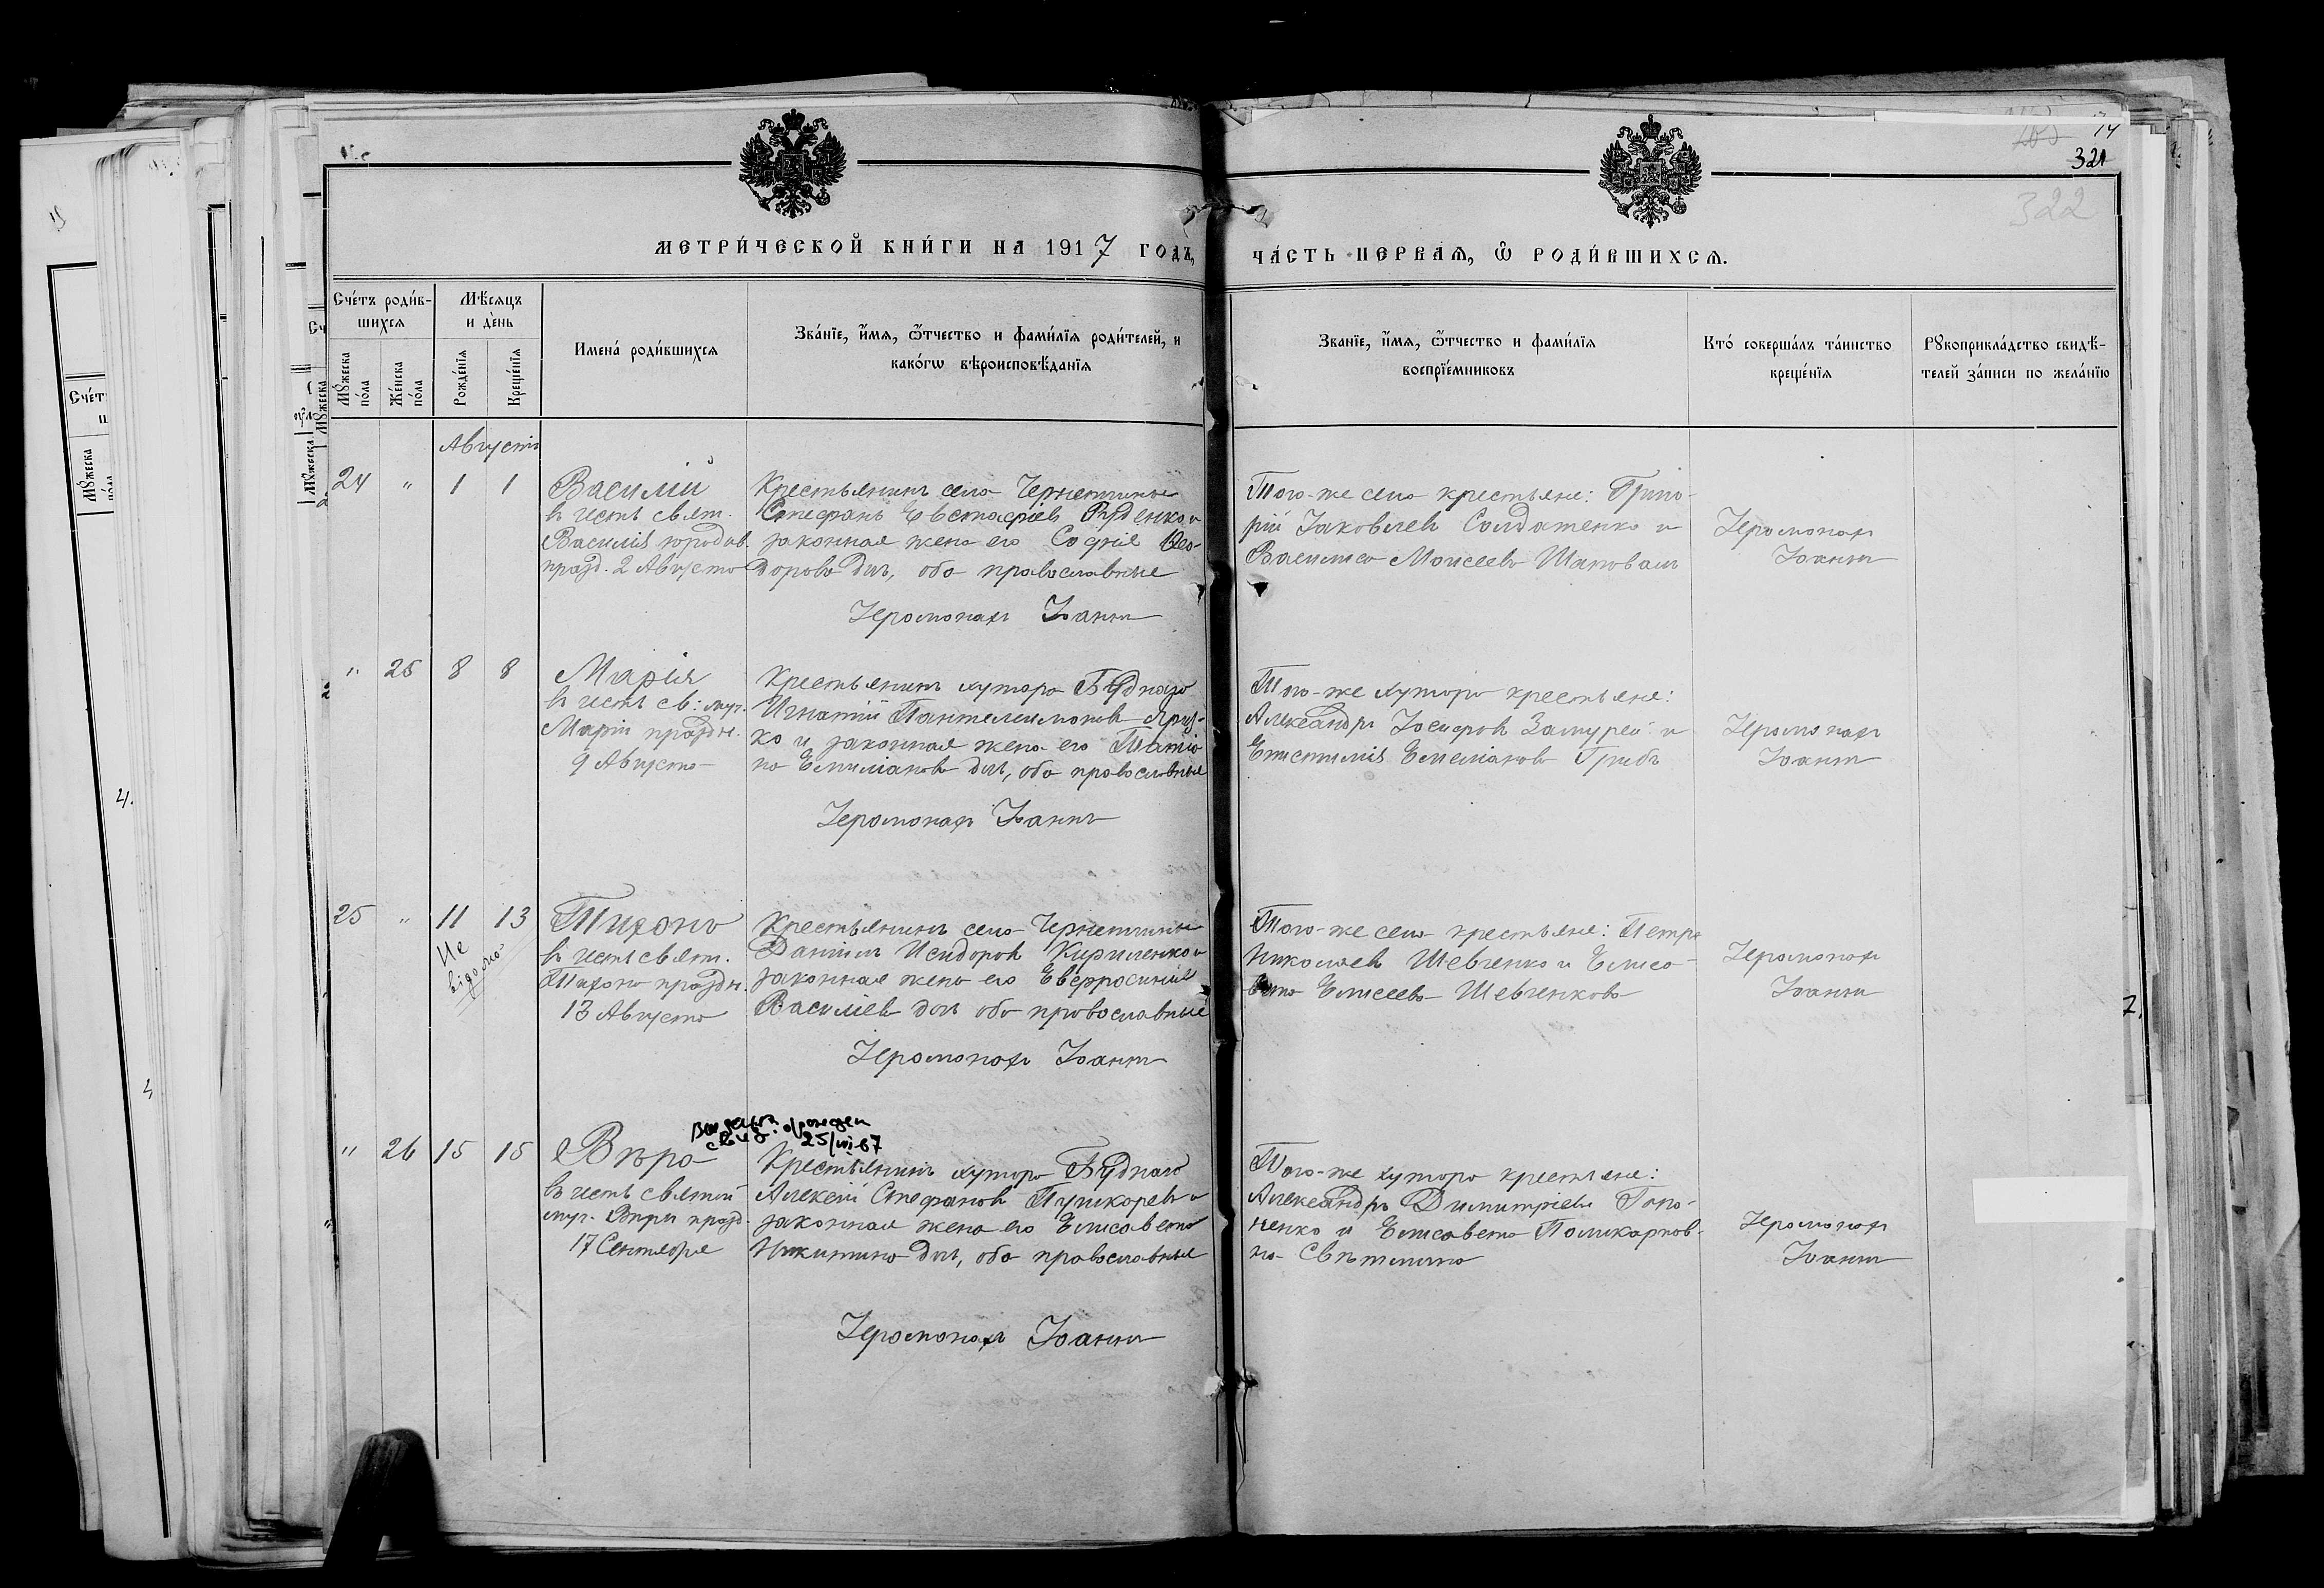 14
321
322
МЕТРИ́ЧЕСКОЙ КНИ́ГИ НА 1917 ГОДЪ,
ЧА́СТЬ ПЕРВАѦ, Ѽ РОДИ́ВШИХСѦ.
Сче́тъ роди́в-
шихсѧ
Мꙋ́жеска по́ла
Же́нска по́ла
Мѣ́сѧцъ
и де́нь
Рожде́нїѧ
Креще́нїѧ
Имена́ роди́вшихсѧ
Зва́нїе, и҆́мѧ, ѻ҆́тчество и фами́лїѧ роди́телей, и
како́гѡ вѣроисповѣ́данїѧ
Зва́нїе, и҆́мѧ, ѻ҆́тчество и фами́лїѧ
воспрїе́мниковъ
Кто́ соверша́лъ та́инство
креще́нїѧ
Рꙋкоприкла́дство свидѣ́-
телей за́писи по жела́нїю
Августъ
24 " 1 1
Василій
въ честь свят.
Василія юродив.
празд. 2 Августа
Крестьянинъ села Чернетчины
Стефанъ Евстафіевъ Руденко и
законная жена его Софія Ѳео-
дорова дч, оба православные
Іеромонахъ Іоаннъ
Того-же села крестьяне: Григо-
рій Іаковлевъ Солдатенко и
Василиса Моисеева Шаповалъ
Іеромонахъ
Іоаннъ
" 25 8 8
Марія
въ честь св: муч.
Маріи праздн.
9 Августа
Крестьянинъ хутора Буднаго
Игнатій Пантелеимоновъ
ко и законная жена его Татіа
на Емиліанова дч, оба православные
Іеромонахъ Іоаннъ
Того-же хутора крестьяне:
Александръ Іосифовъ Замурей и
Епистимія Емеліанова Грибъ
Іеромонахъ
Іоаннъ
25 " 11 13
Не
видано
Тихонъ
въ честь свят.
Тихона праздн.
13 Августа
Крестьянинъ села Чернетчины
Даніилъ Исидоровъ Кириленко и
законная жена его Евфросинія
Василіева дч оба православные
Іеромонахъ Іоаннъ
Того-же села крестьяне: Петръ
Николаевъ Шевченко и Елиса-
вета Елисеева Шевченкова
Іеромонахъ
Іоаннъ
" 26 15 15
Вѣра
въ честь святой
муч. Вѣры празд.
17 Сентября
свид. о рожден
25/VII-67
Крестьянинъ хутора Буднаго
Алексій Стефановъ Пушкаревъ и
законная жена его Елисавета
Никитина дч, оба православные
Іеромонахъ Іоаннъ
Того-же хутора крестьяне:
Александръ Димитріевъ Гапо-
ненко и Елисавета Поликарпов-
на Свѣтлична
Іеромонахъ
Іоаннъ